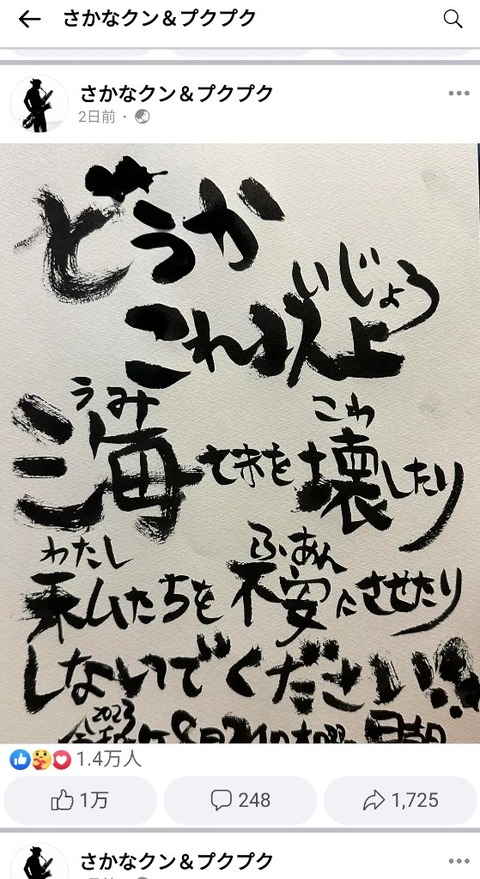 さかなクン＆プクプク
さかなクン＆プクプク
2日前
どうか
いじょう
これ以上
うみ こわ
海 を壊したり
わたし ふあん
私たちを不安にさせたり
しないでください!!
2023
1.4万人
1万 248 1,725
さかなクン＆プクプク